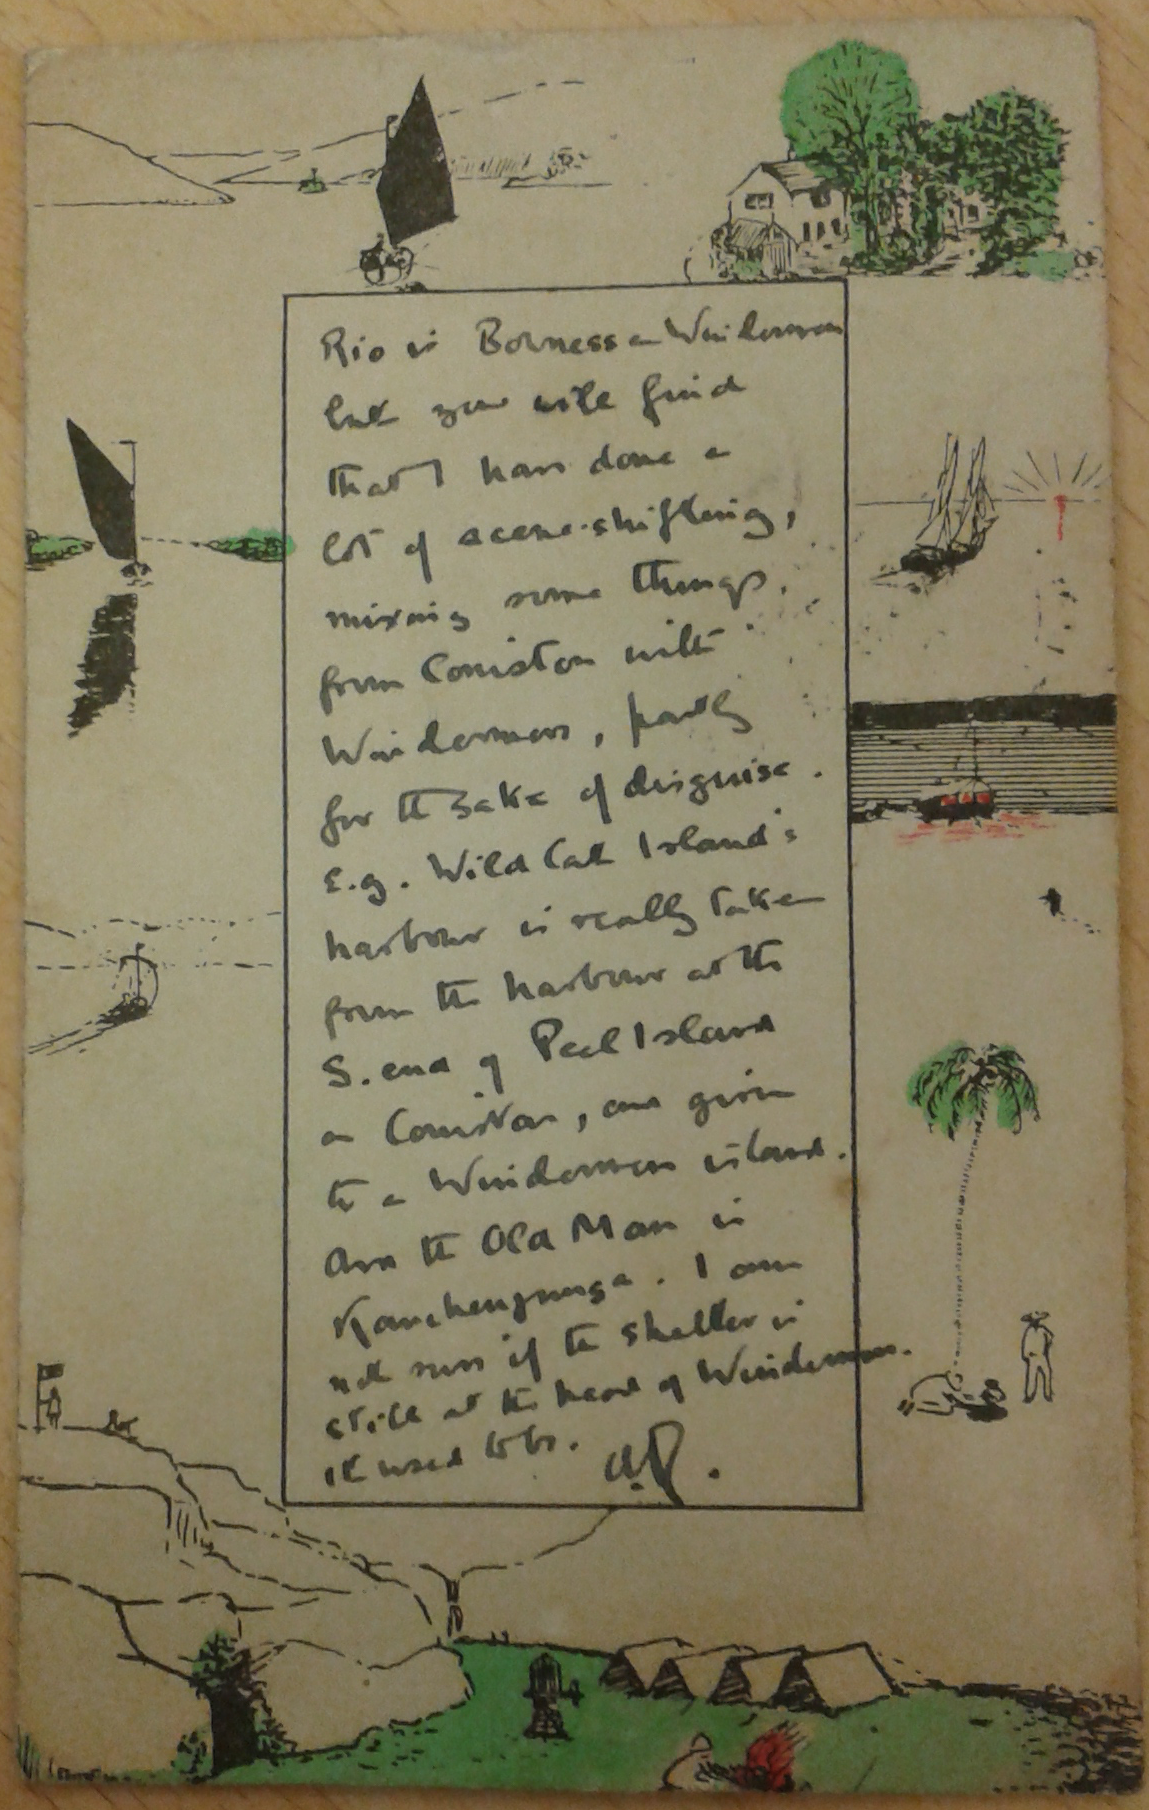 Rio is Bowness on Windermere
but you will find
that I have done a
lot of scene-shifting,
mixing some things
from Coniston with
Windermere, partly
for the sake of disguise.
E.g. Wild Cat Island's
harbour is really taken
from the harbour at the
S. end of Peel Island
on Coniston, and given
to a Windermere island.
And the Old Man is
Kanchenjunga. I am
not sure if the shelter is
still at the head of Windermere.
it used to be. A.R.